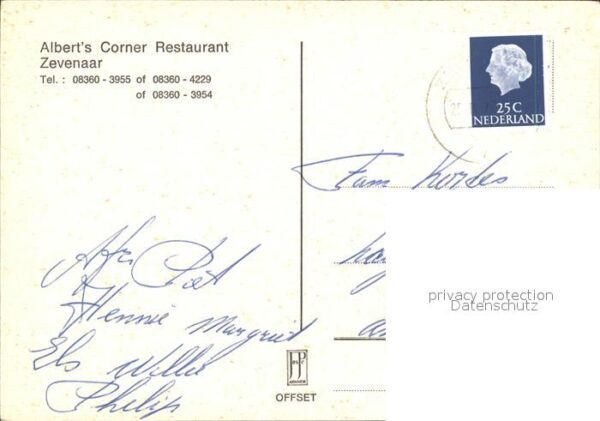 Albert's Corner Restaurant
Zevenaar
Tel. : 08360 - 3955 of 08360 - 4229
of 08360 - 3954
25 C
NEDERLAND
Fam Kordes
privacy protection
Datenschutz
Piet
Hennie Margriet
Els Willie
Philip
OFFSET